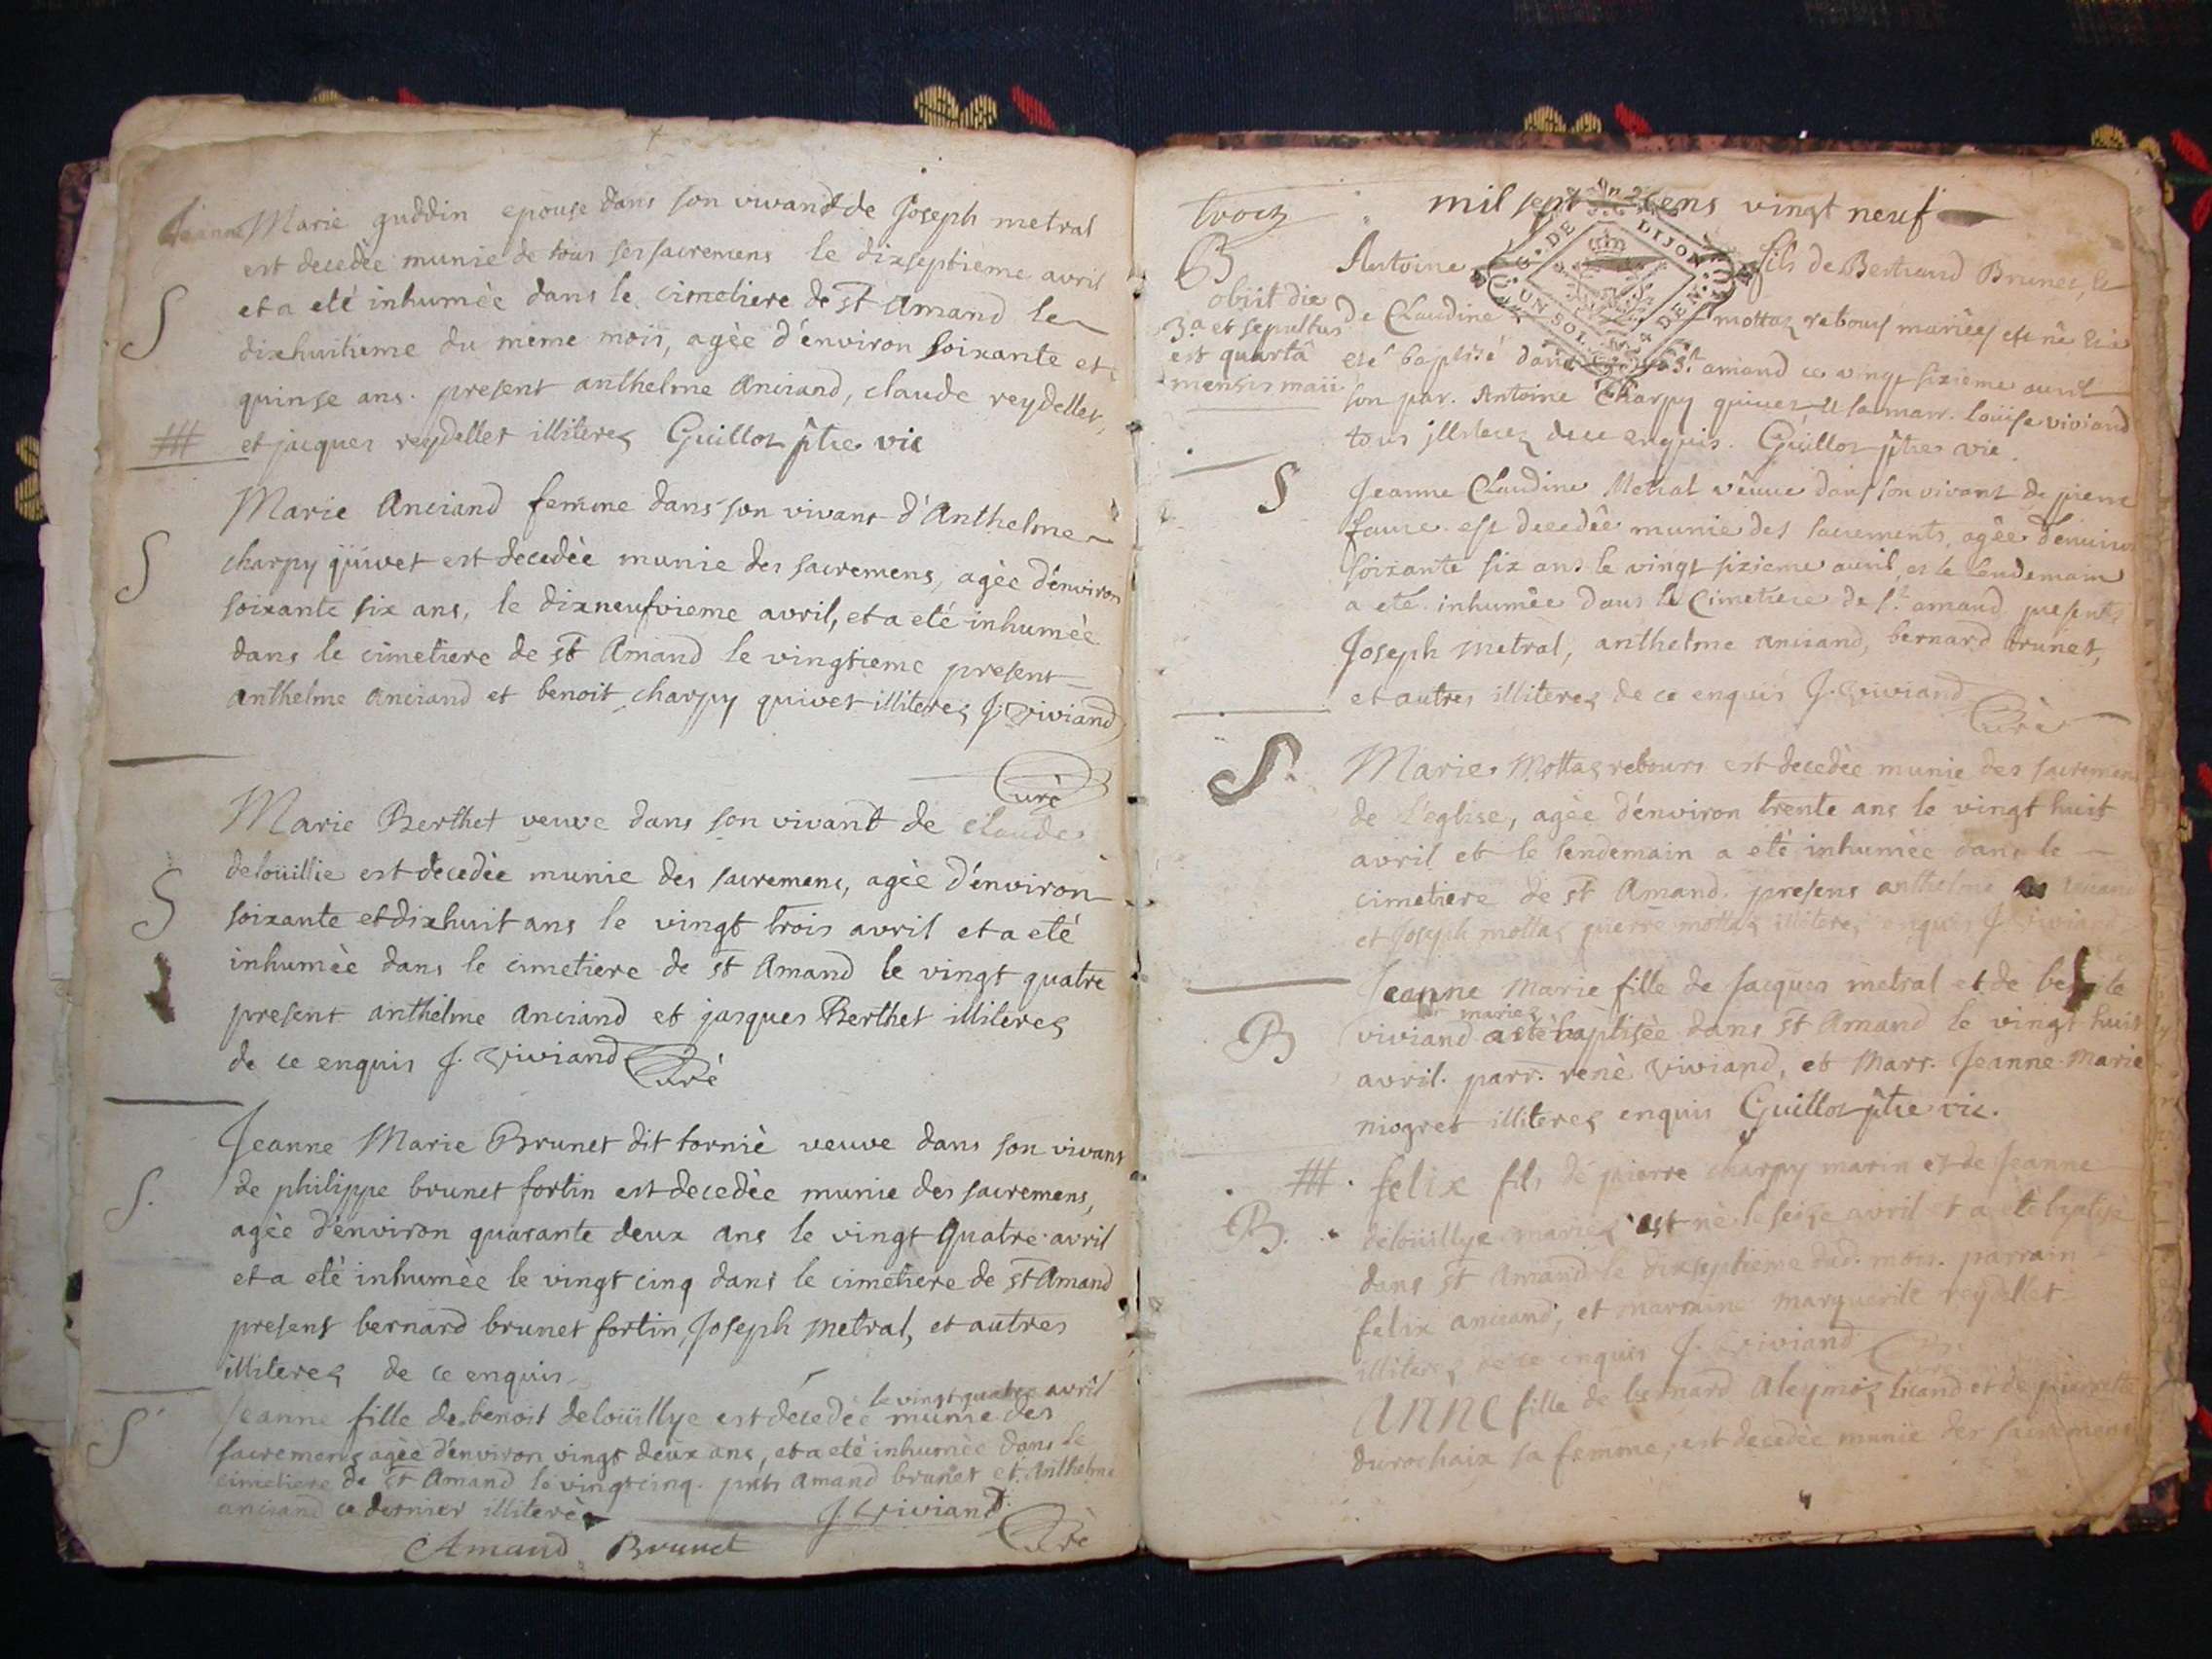 Jeanne Marie guddin epouse dans son vivant de Joseph metral
est decedèe munie de tous ses sacremens le dixseptieme avril
S
et a eté inhumèe dans le cimetiere de st Amand le
dixhuitieme du meme mois, agèe d'environ soixante et
quinse ans. present anthelme Anciand, claude reydellet,
et jacques reydellet illiterez Guillot ptre vic
Marie Anciand femme dans son vivant d'Anthelme
S
charpy quivet est decedèe munie des sacremens, agèe d'environ
soixante six ans, le dixneufvieme avril, et a eté inhumèe
dans le cimetiere de st Amand le vingtieme present
anthelme anciand et benoit charpy quivet illiterez J. Viviand
Curè
Marie Berthet veuve dans son vivant de claude
S
deloüillie est decedèe munie des sacremens, agèe d'environ
soixante et dixhuit ans le vingt trois avril et a eté
inhumèe dans le cimetiere de st Amand le vingt quatre
present anthelme anciand et jacques Berthet illiterez
de ce enquis J. Viviand Curè
Jeanne Marie Brunet dit torniè veuve dans son vivant
S.
de philippe brunet fortin est decedèe munie des sacremens,
agèe d'environ quarante deux ans le vingt quatre avril
et a eté inhumèe le vingt cinq dans le cimetiere de st Amand
presens bernard brunet fortin, Joseph metral, et autres
illiterez de ce enquis
le vingt quatre avril
S
Jeanne fille de benoit deloüillye est decedèe munie des
sacremens agèe d'environ vingt deux ans, et a eté inhumèe dans le
cimetiere de st Amand le vingt cinq. pnts amand brunet et Anthelme
anciand ce dernier illiterè J. Viviand
Curè
Amand Brunet
mil sept cens vingt neuf
G. DE DIJON
UN SOL 4 DEN.
B
obiit die
3.a et sepultus
est quartâ
mensis maii
Antoine fils de Bertrand Brunet, et
de Claudine mottaz rebour mariez est né et a
eté baptisé dans St. amand ce vingt sixieme avril
son par. Antoine Charpy quivet et sa marr. Loüise viviand
tous illiterez de ce enquis. Guillot ptre vic.
S
Jeanne Claudine Metral veuve dans son vivant de pierre
faure est decedée munie des sacrements, agèe d'environ
soixante six ans le vingt sixieme avril, et le lendemain
a eté inhumée dans le Cimetiere de St. amand presents
Joseph metral, anthelme anciand, bernard brunet,
et autres illiterez de ce enquis J. Viviand
Curè
S.
Marie Mottaz rebours est decedèe munie des sacremens
de l'eglise, agèe d'environ trente ans le vingt huit
avril et le lendemain a eté inhumèe dans le
cimetiere de st Amand. presens anthelme
et Joseph mottaz pierre mottaz illiterez enquis J. Viviand
Jeanne Marie fille de Jacques metral et de
mariez
B
viviand a eté baptisèe dans st Amand le vingt huit
avril. parr. renè Viviand, et Marr. Jeanne Marie
niogret illiterez enquis Guillot ptre vic.
felix fils de pierre charpy marin et de Jeanne
B.
deloüillye mariez est nè le seise avril et a eté baptisè
dans st Amand le dixseptieme dud. mois. parrain
felix anciand, et marraine marguerite reydellet
illiterez de ce enquis J. Viviand
Curè
Anne fille de bernard Aleymoz et de pierrette
durochaix sa femme, est decedèe munie des sacremens